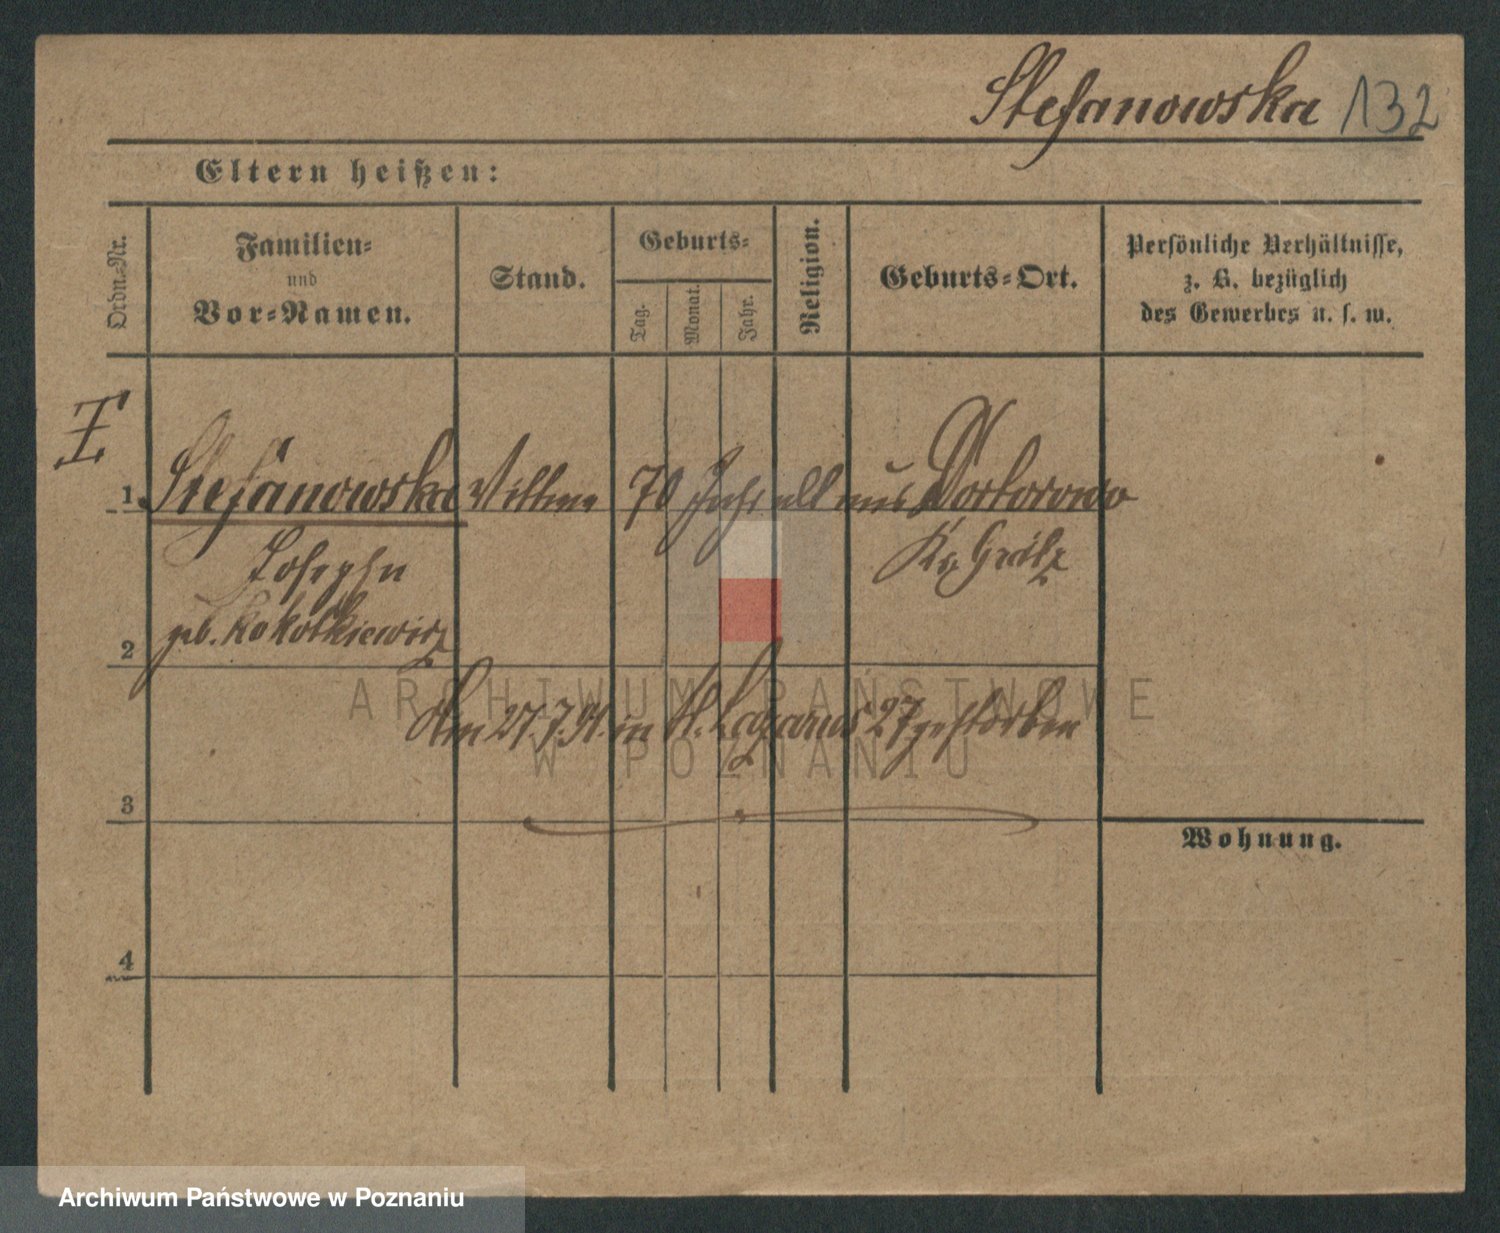 Stefanowska 132
Eltern heißen:
Ordn.-Nr.
Familien-
und
Vor-Namen.
Stand.
Geburts-
Tag.
Monat.
Jahr.
Religion.
Geburts-Ort.
Persönliche Verhältnisse,
z. B. bezüglich
des Gewerbes u. s. w.
1 Stefanowska Wittwe 70 Jahr alt aus
Josepha Kr. Grätz
geb.
2
Am 27.7.91. in St. Lazarus 27 gestorben
3
Wohnung.
4
ARCHIWUM PAŃSTWOWE
W POZNANIU
Archiwum Państwowe w Poznaniu